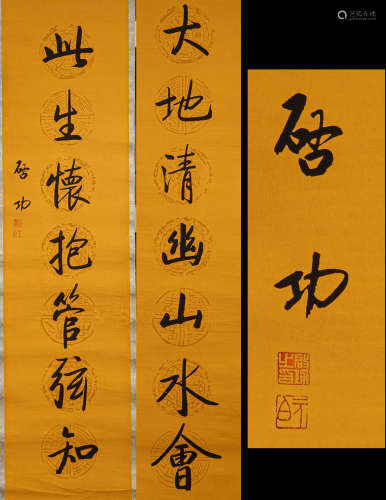 大地清幽山水會
此生懷抱管弦知
啓功
啓功